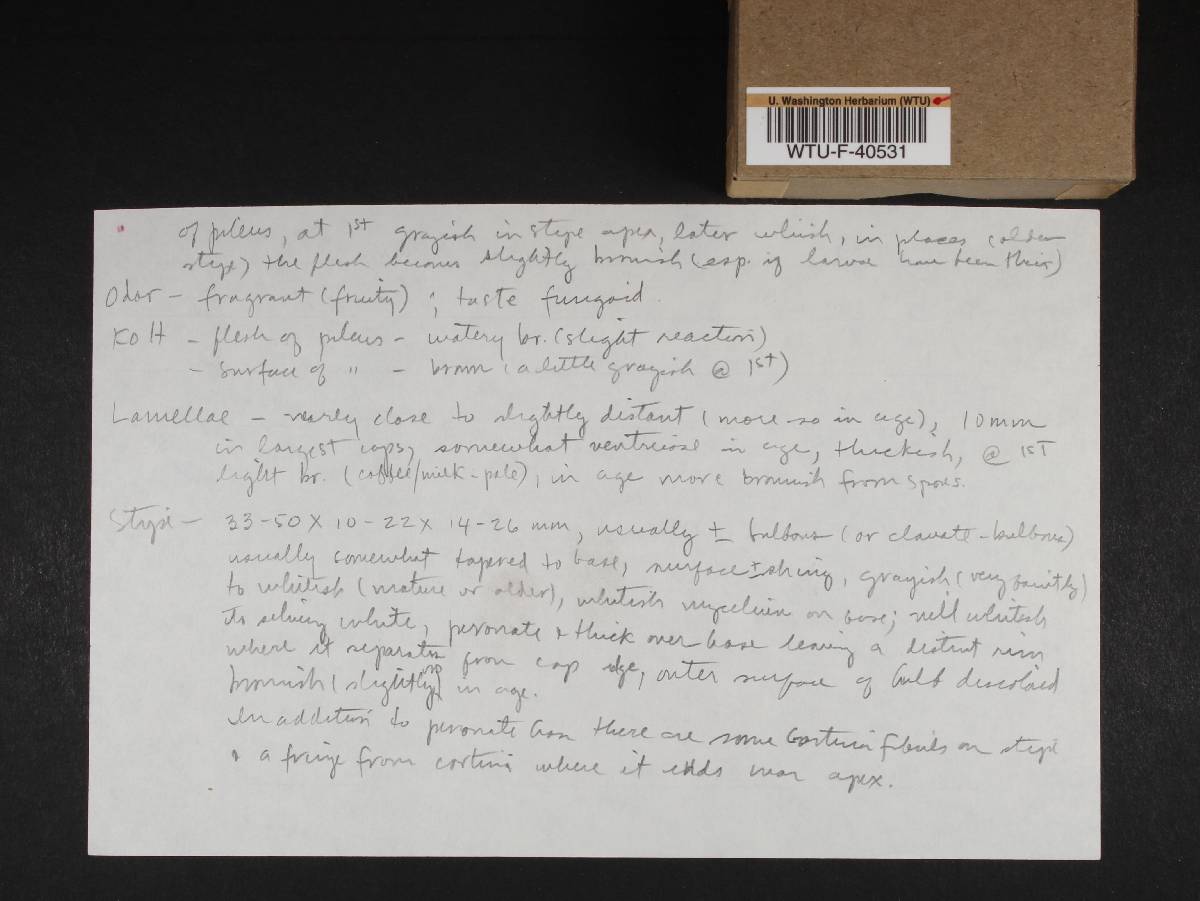 U. Washington Herbarium (WTU)
WTU-F-40531
of pileus, at 1st grayish in stipe apex, later whitish, in places (older
stipe) the flesh becomes slightly brownish (esp. if larvae have been there)
Odor - fragrant (fruity) ; taste fungoid.
KOH - flesh of pileus - watery br. (slight reaction)
- surface of " - brown (a little grayish @ 1st)
Lamellae - nearly close to slightly distant (more so in age), 10 mm
in largest caps, somewhat ventricose in age, thickish, @ 1st
light br. (coffee/milk - pale), in age more brownish from spores.
Stipe - 33-50 X 10-22 X 14-26 mm, usually ± bulbous (or clavate-bulbous)
usually somewhat tapered to base, surface ± shiny, grayish (very faintly)
to whitish (mature or older), whitish mycelium on base; veil whitish
to silvery white, peronate & thick over base leaving a distinct rim
where it separates from cap edge, outer surface of bulb discolored
brownish (slightly so) in age.
In addition to peronate there are some cortina fibrils on stipe
& a fringe from cortina where it ends near apex.